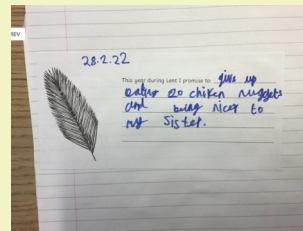 REV
28.2.22
This year during Lent I promise to give up
eating 20 chiken nuggets
and being nicer to
my sister.